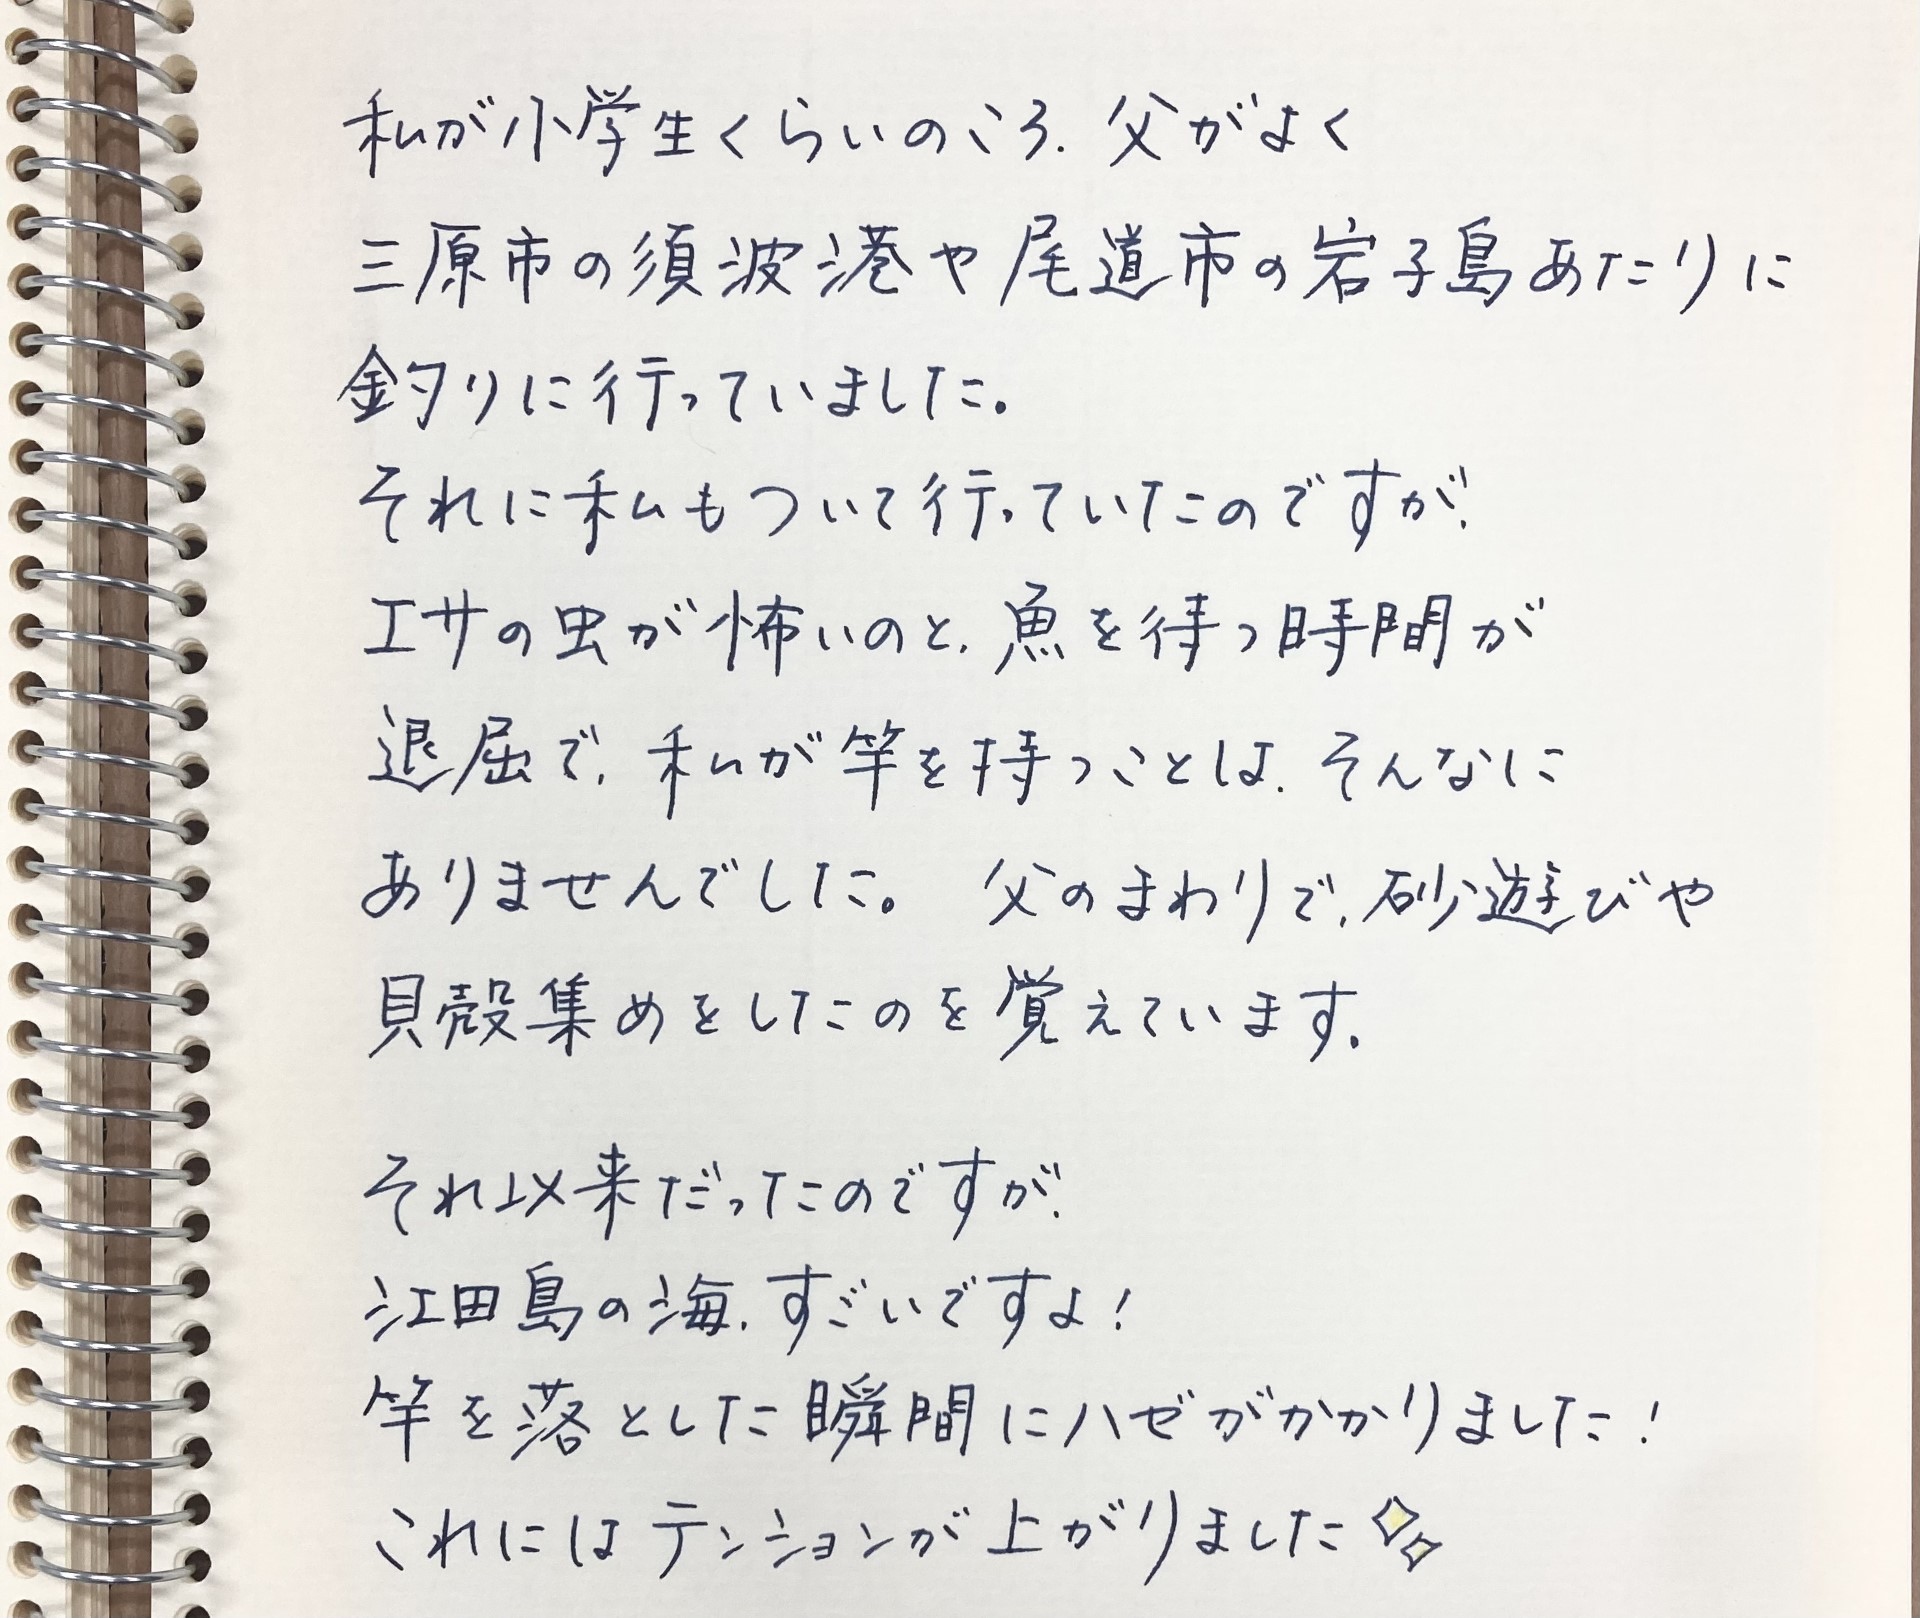 私が小学生くらいのころ、父がよく
三原市の須波港や尾道市の岩子島あたりに
釣りに行っていました。
それに私もついて行っていたのですが、
エサの虫が怖いのと、魚を待つ時間が
退屈で、私が竿を持つことは、そんなに
ありませんでした。 父のまわりで、砂遊びや
貝殻集めをしたのを覚えています。
それ以来だったのですが、
江田島の海、すごいですよ！
竿を落とした瞬間にハゼがかかりました！
これにはテンションが上がりました